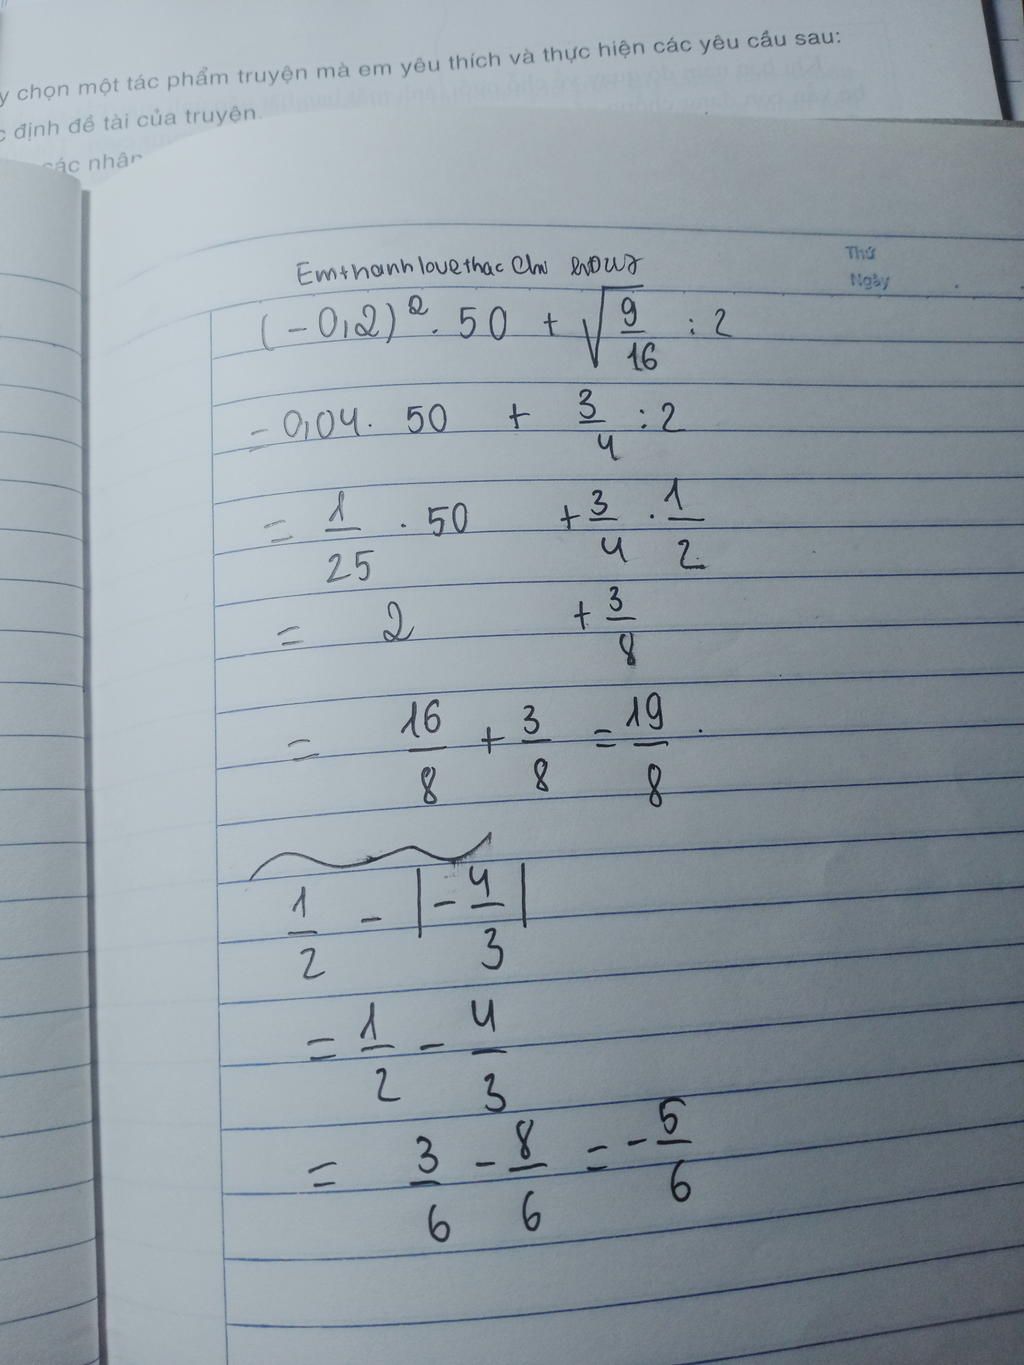 y chọn một tác phẩm truyện mà em yêu thích và thực hiện các yêu cầu sau:
c định đề tài của truyện.
các nhân
Thứ
Ngày
Emthanhlovethac Chi
(-0,2)² . 50 + √(9/16) : 2
= 0,04 . 50 + 3/4 : 2
= 1/25 . 50 + 3/4 . 1/2
= 2 + 3/8
= 16/8 + 3/8 = 19/8 .
1/2 - |-4/3|
= 1/2 - 4/3
= 3/6 - 8/6 = -5/6